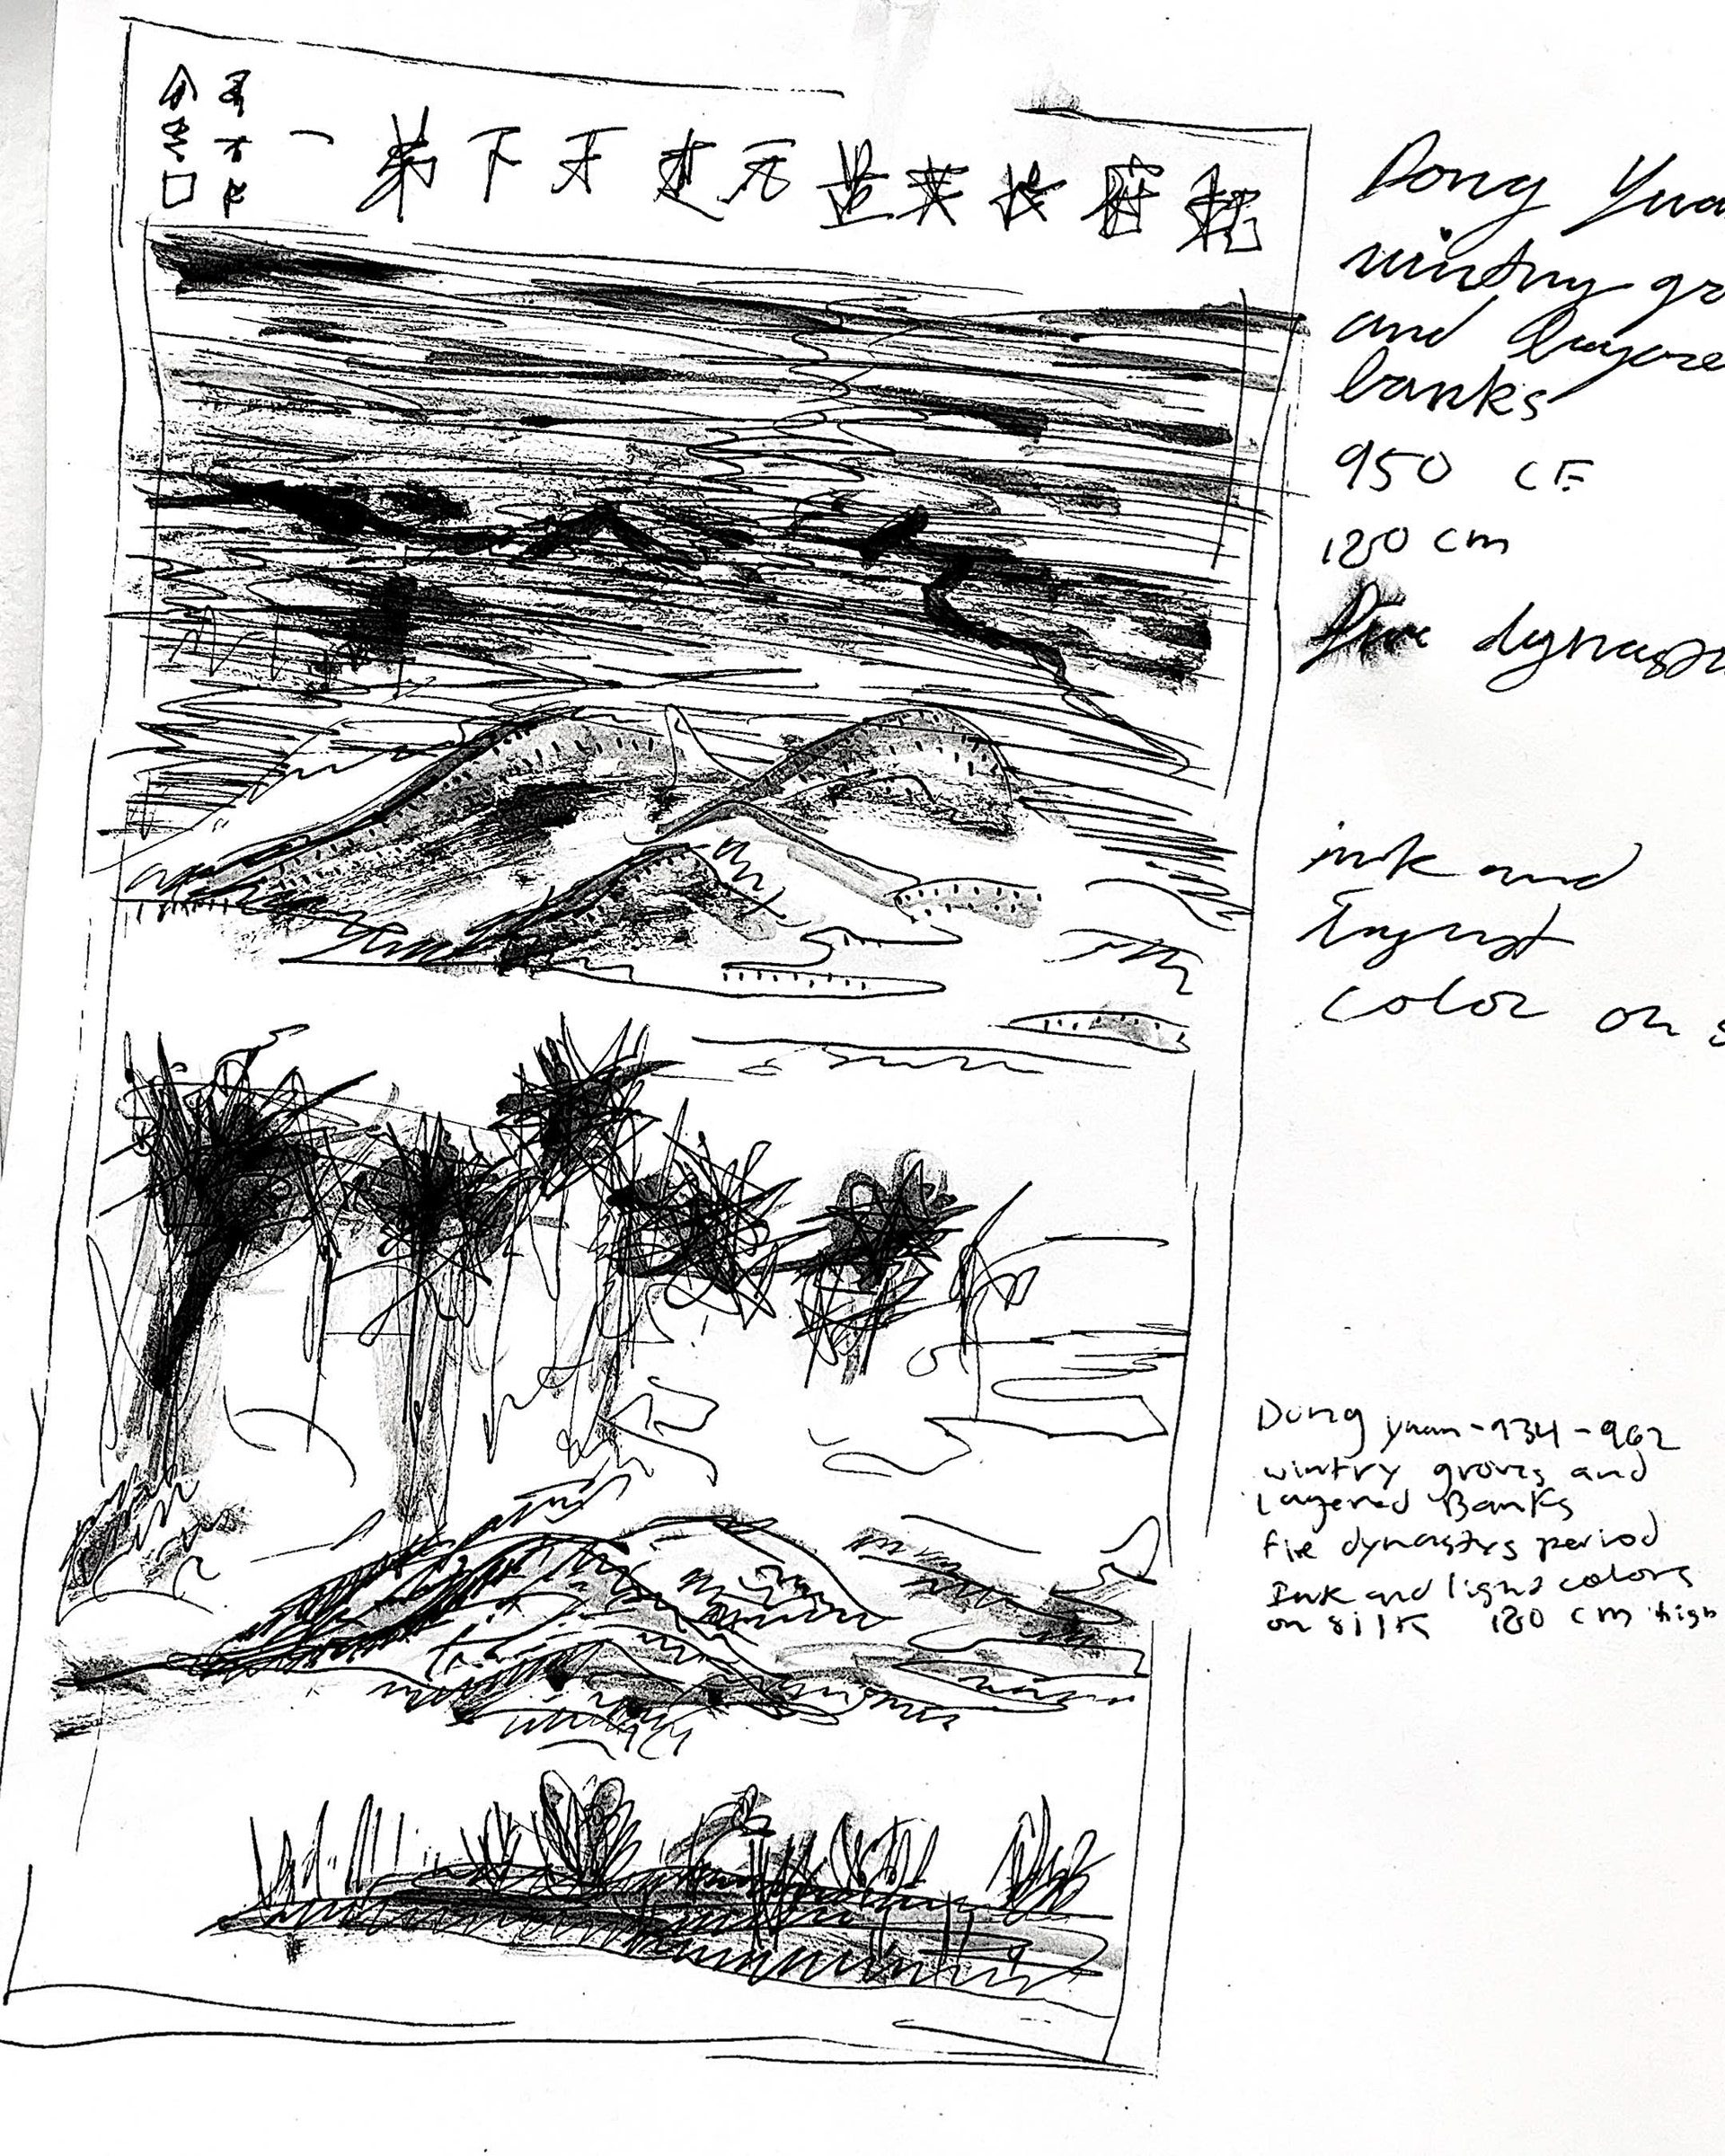 元 天下第一
Dong Yua
wintry gr
and layere
banks
950 CE
180 cm
Five
ink and
color on s
Dong yuan - 934 - 962
wintry groves and
Layered Banks
dynastys period
Ink and light colors
on silk 180 cm high